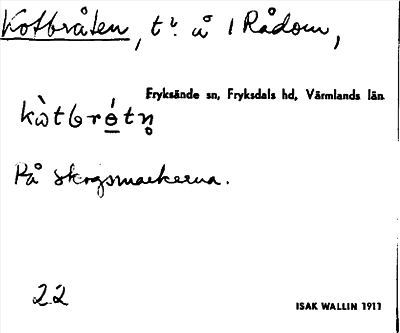 Kotbråten, t. å 1 Rådom,
Fryksände sn, Fryksdals hd, Värmlands län
kòtbrétn̥
På skogsmarkerna.
22
ISAK WALLIN 1911